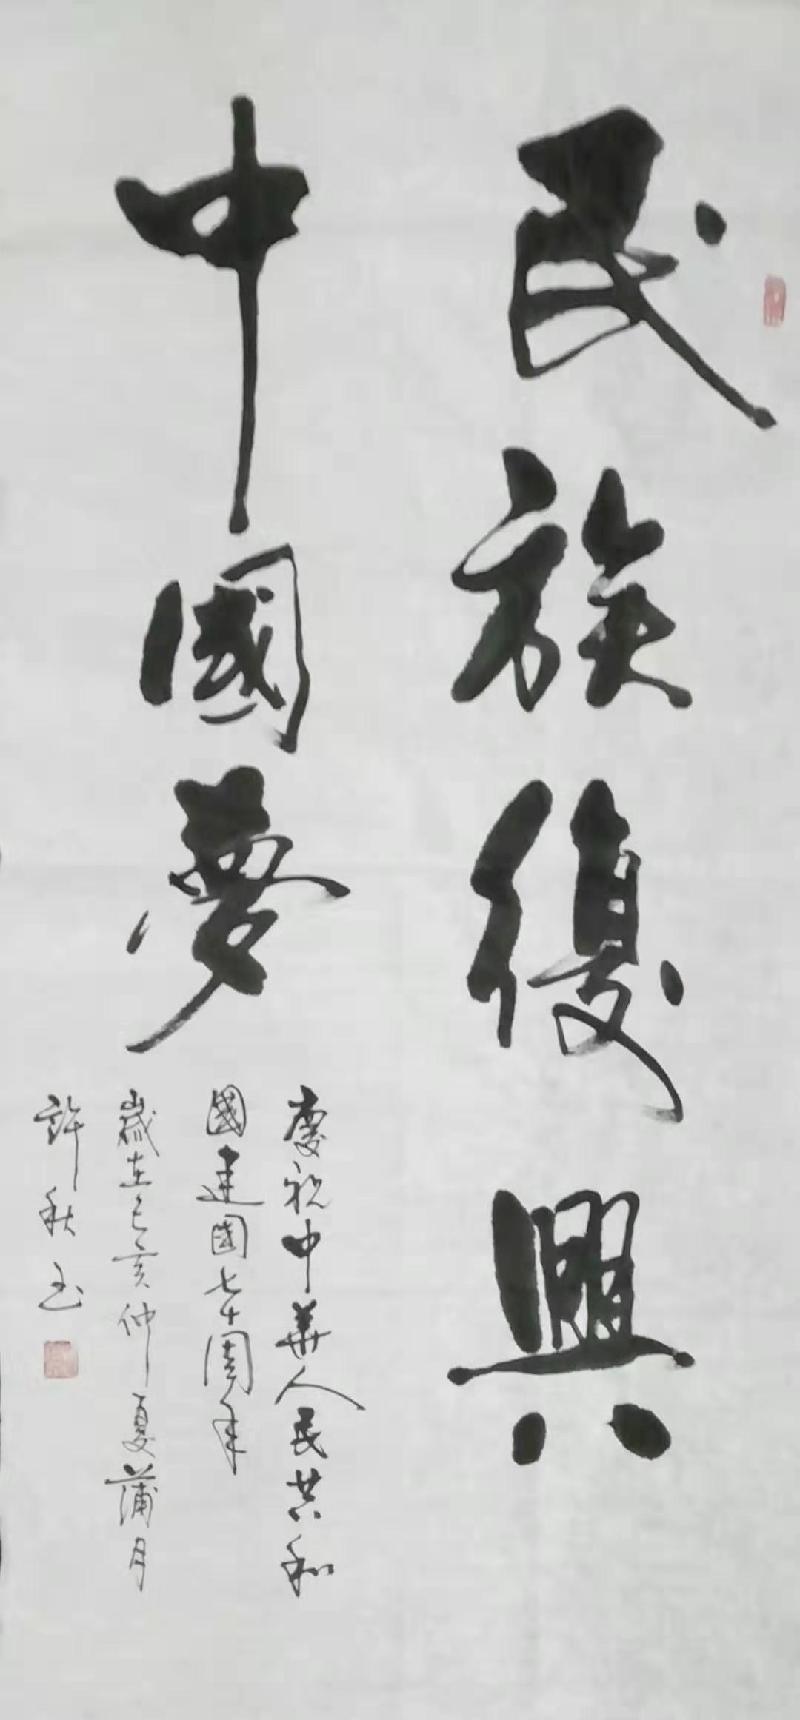 民族復興
中國夢
慶祝中華人民共和
國建國七十周年
歲在己亥仲夏蒲月
許秋玉